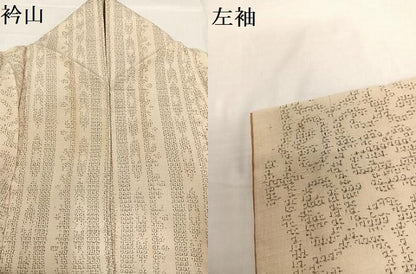 衿山
左袖